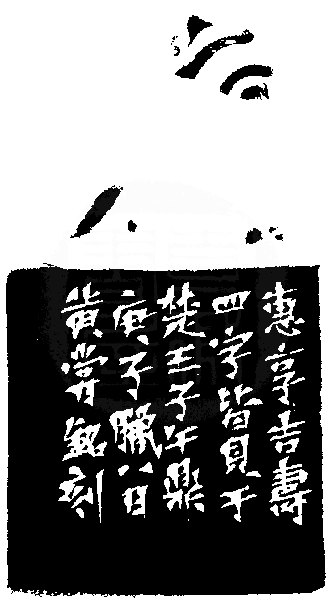 惠享吉壽
四字皆見于
楚王子午鼎
庚子臘八日
黃嘗銘刻